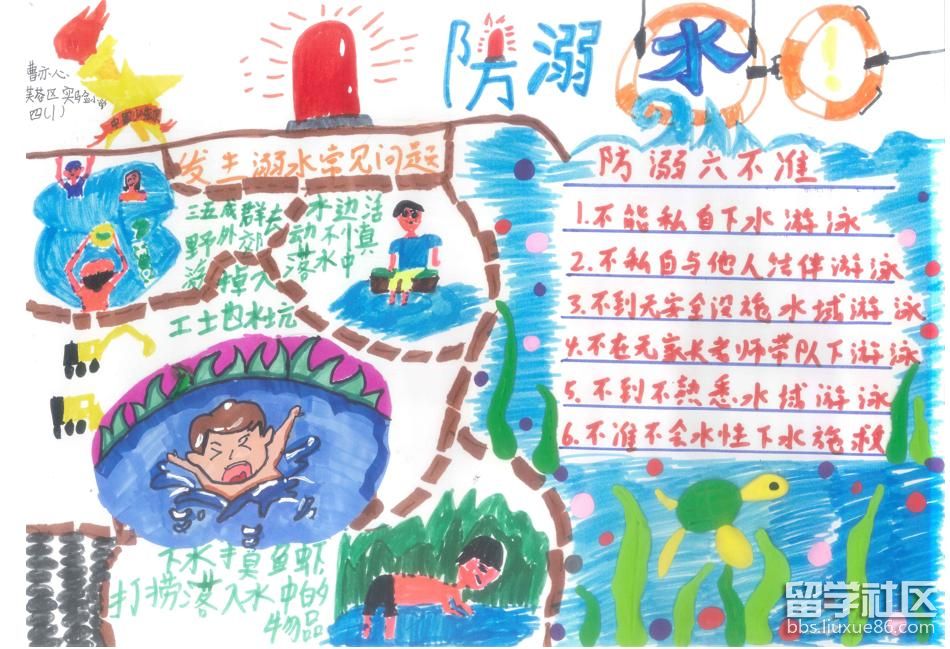 防溺水
曹亦心
芙蓉区实验小学
四(1)
发生溺水常见问题
三五成群去
野外郊
游掉入
工土包水坑
水边活
动不慎
落水中
下水摸鱼虾
打捞落入水中的
物品
防溺六不准
1.不能私自下水游泳
2.不私自与他人结伴游泳
3.不到无安全设施水域游泳
4.不在无家长老师带队下游泳
5.不到不熟悉水域游泳
6.不准不会水性下水施救
留学社区
bbs.liuxue86.com